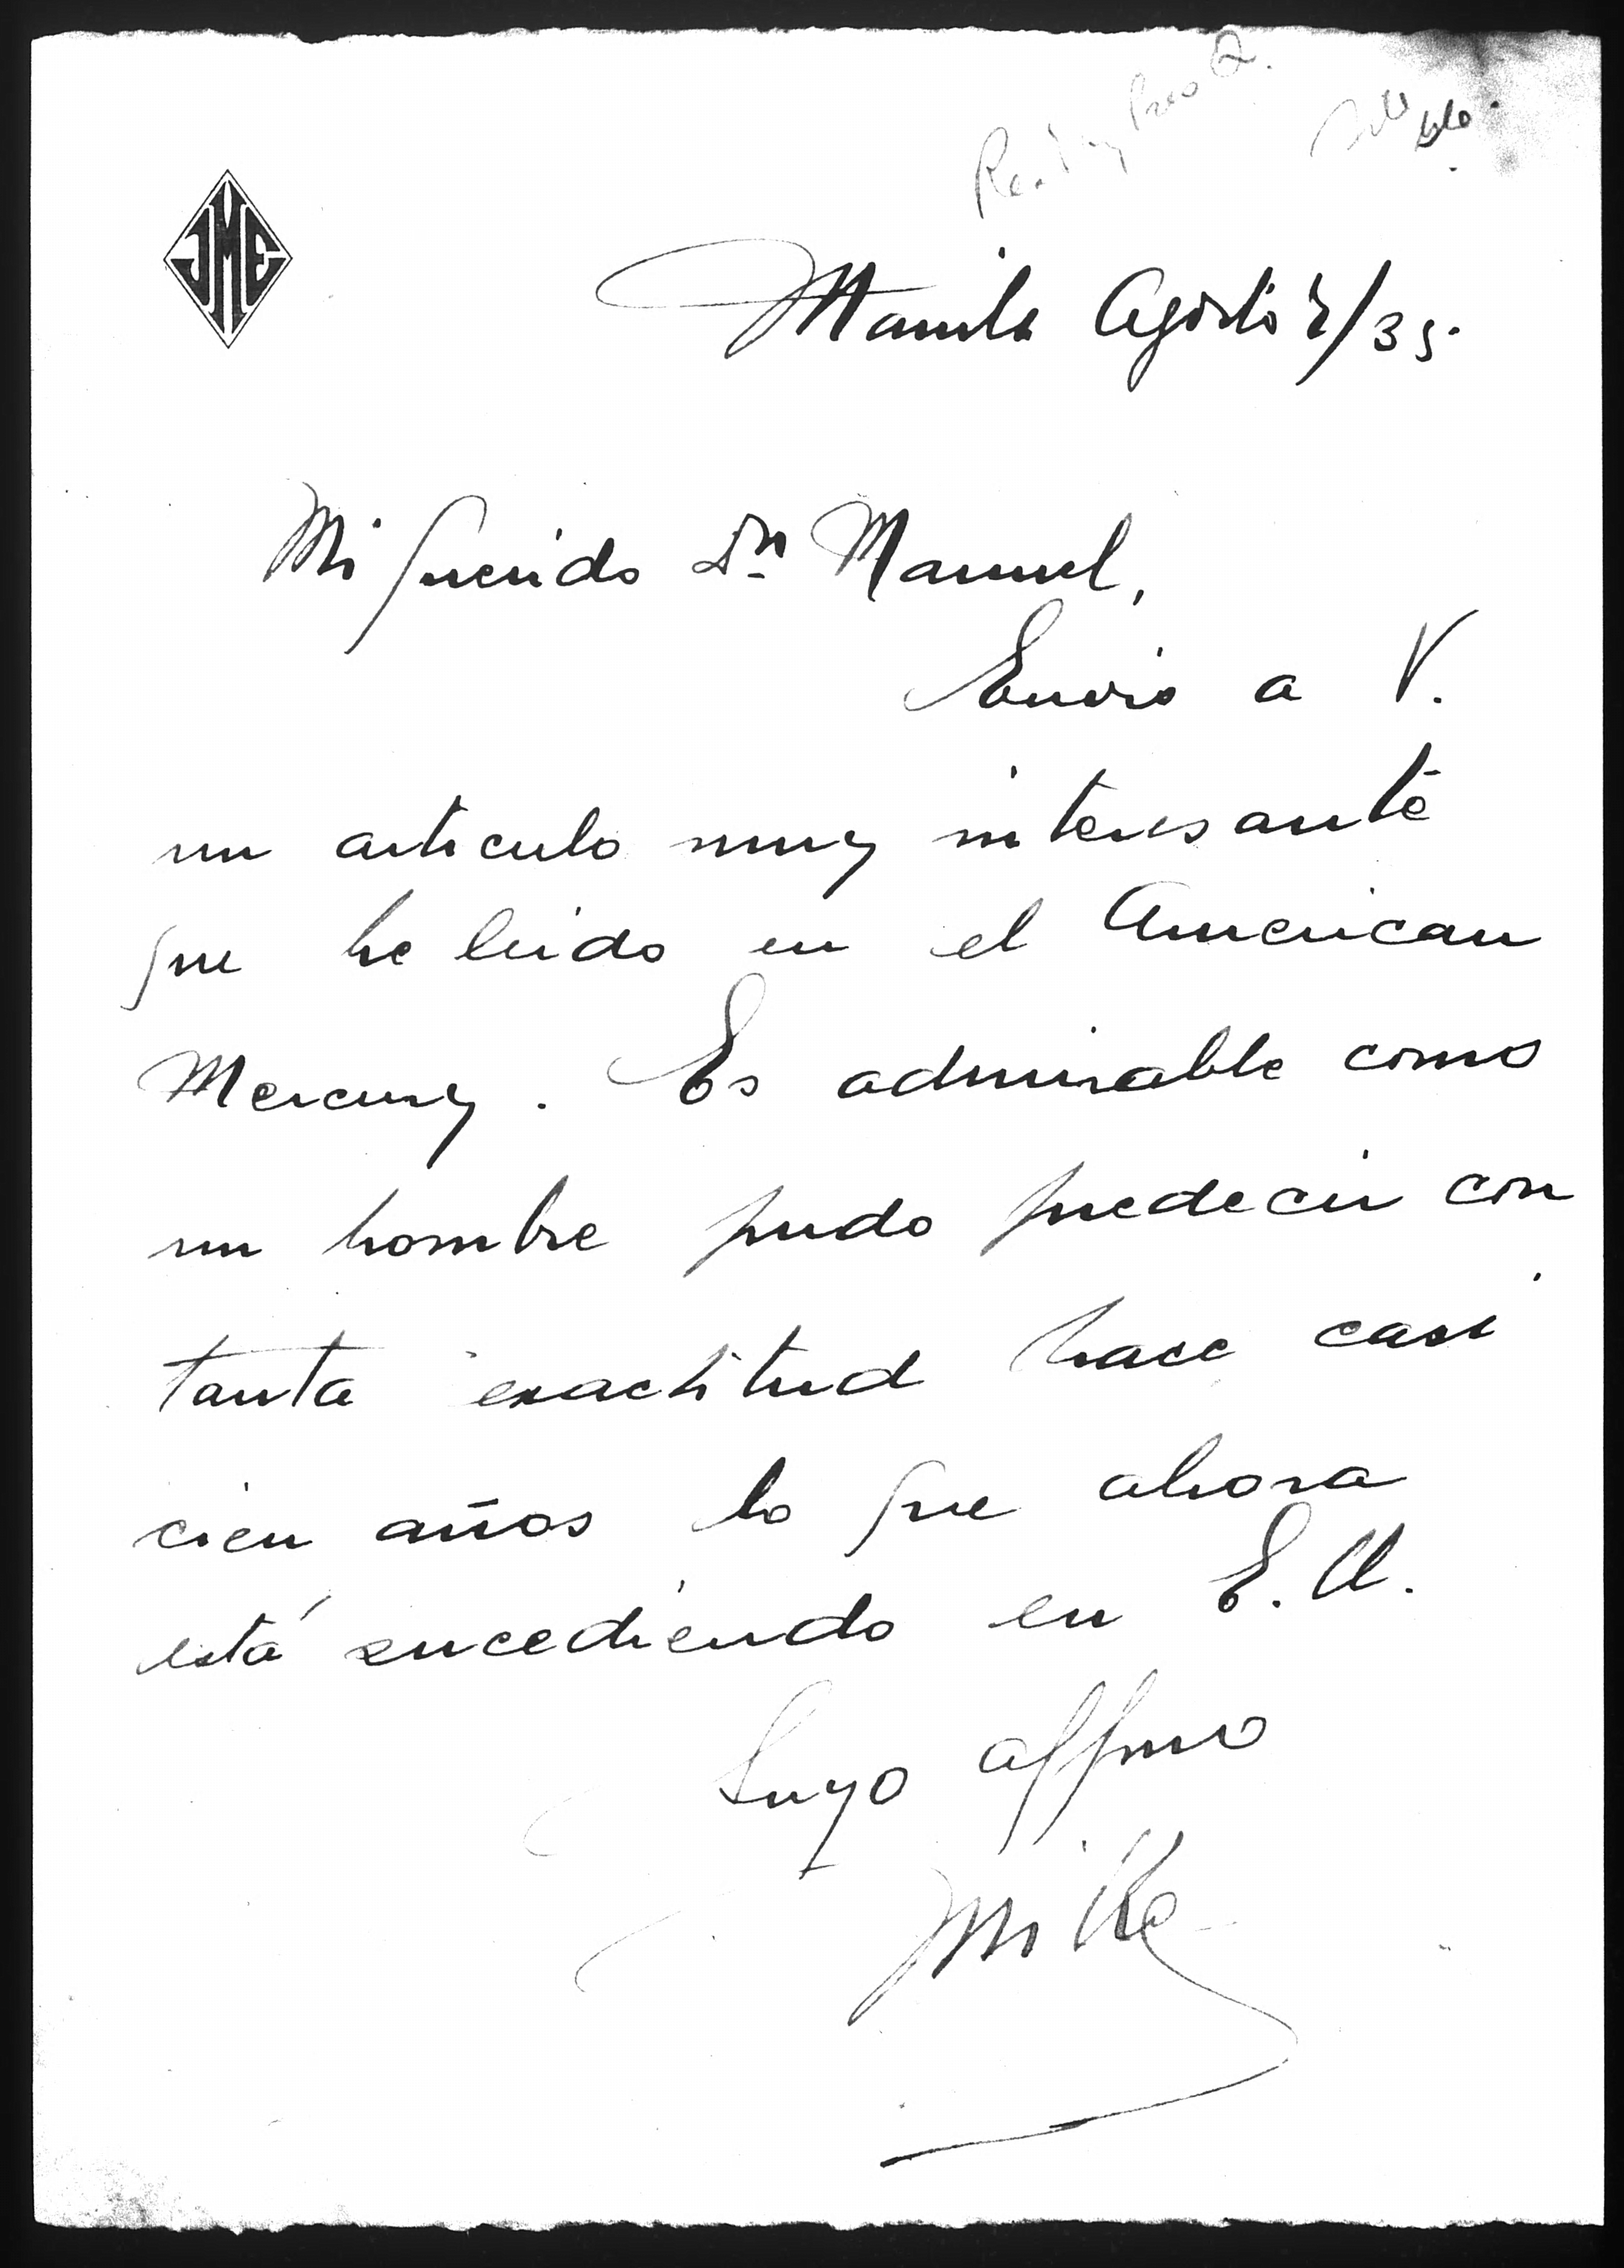 Read by Pres Q.
JME
Manila Agosto /35.
Mi querido Dn Manuel,
Envio a V.
un articulo muy interesante
que he leido en el American
Mercury. Es admirable como
un hombre pudo predecir con
tanta exactitud hace casi
cien años lo que ahora
está sucediendo en E.U.
Suyo affmo
Mike